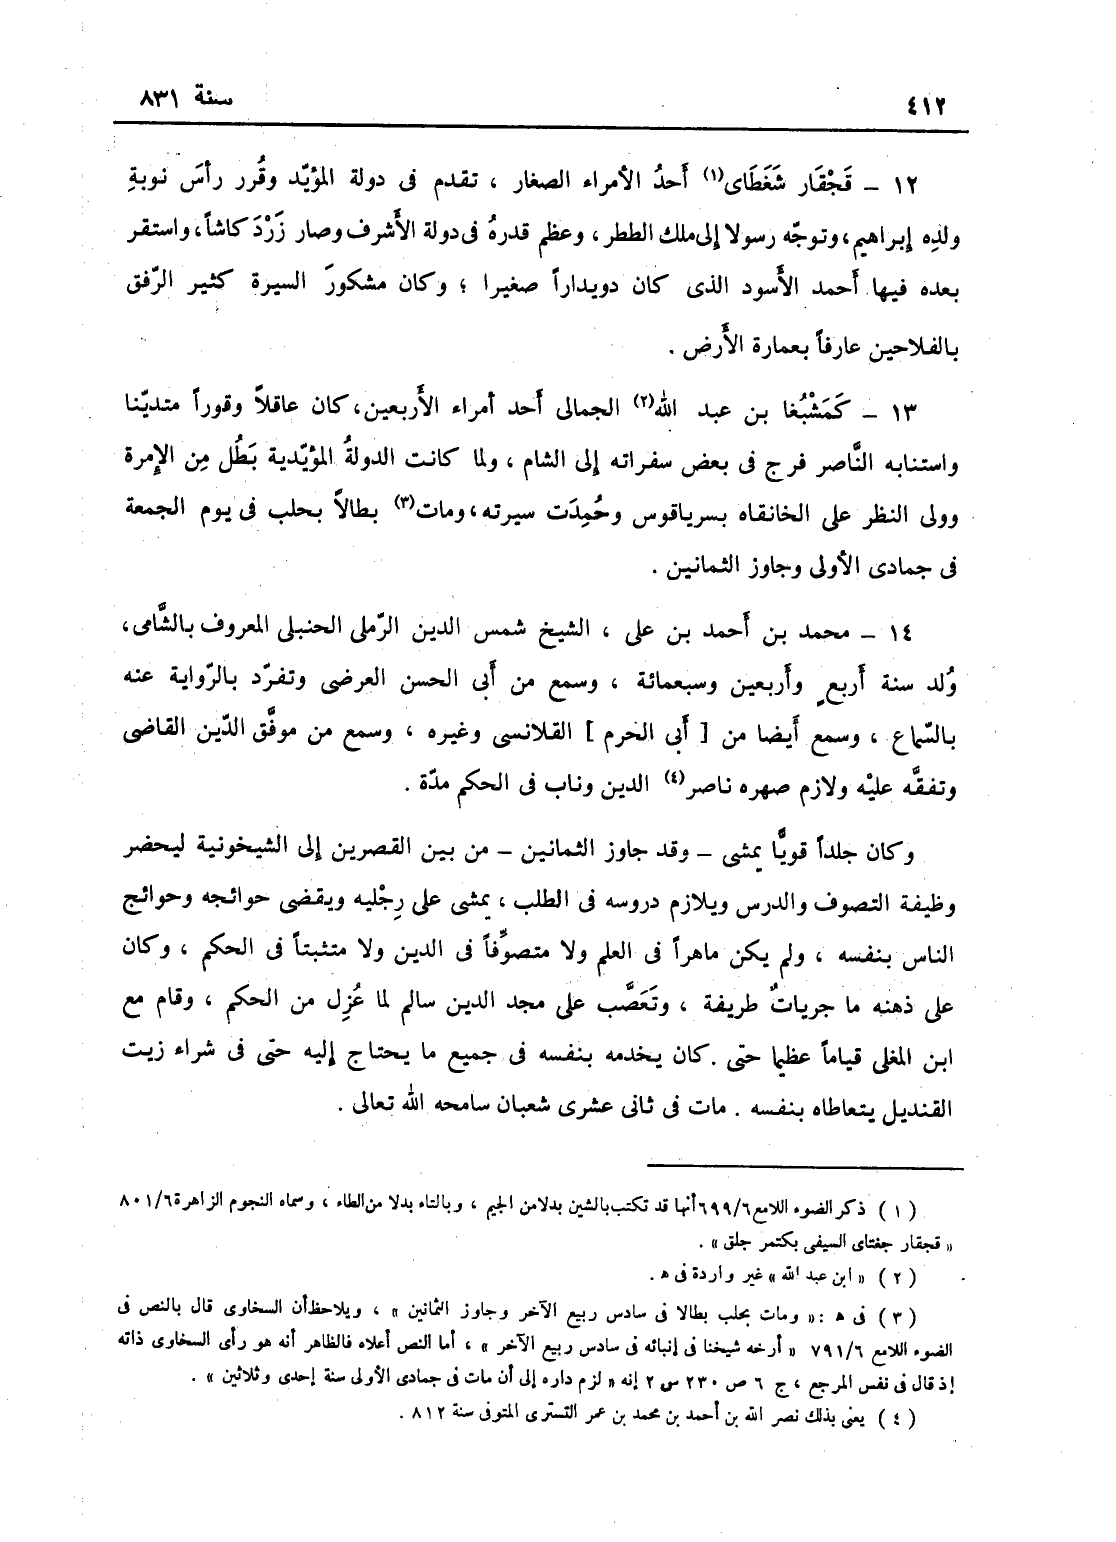 ٤١٢ سنة ٨٣١
١٢ ــ قَجْقَار شَغَطَاى(١) أَحدُ الأمراء الصغار ، تقدم فى دولة المؤيّد وقُرر رأسَ نوبةِ
ولدِه إبراهيم، وتوجّه رسولا إلى ملك الططر ، وعظم قدرهُ فى دولة الأَشرف وصار زَرْدَ كاشاً، واستقر
بعده فيها أَحمد الأَسود الذى كان دويداراً صغيرا ؛ وكان مشكورَ السيرة كثير الرّفق
بالفلاحين عارفاً بعمارة الأَرض .
١٣ ــ كَمَشْبُغا بن عبد الله(٢) الجمالى أَحد أمراء الأَربعين، كان عاقلاً وقوراً متديّنا
واستنابه النَّاصر فرج فى بعض سفراته إلى الشام ، ولما كانت الدولةُ المؤيّدية بَطُل مِن الإِمرة
وولى النظر على الخانقاه بسرياقوس وحُمِدَت سيرته، ومات(٣) بطالاً بحلب فى يوم الجمعة
فى جمادى الأولى وجاوز الثمانين .
١٤ ــ محمد بن أَحمد بن على ، الشيخ شمس الدين الرّملى الحنبلى المعروف بالشَّامى،
وُلد سنة أَربعٍ وأَربعين وسبعمائة ، وسمع من أَبى الحسن العرضى وتفرّد بالرّواية عنه
بالسّماع ، وسمع أَيضا من [ أَبى الحرم ] القلانسى وغيره ، وسمع من موفَّق الدّين القاضى
وتفقَّه عليْه ولازم صهره ناصر(٤) الدين وناب فى الحكم مدّة .
وكان جلداً قويًّا يمشى ــ وقد جاوز الثمانين ــ من بين القصرين إلى الشيخونية ليحضر
وظيفة التصوف والدرس ويلازم دروسه فى الطلب ، يمشى على رِجْليه ويقضى حوائجه وحوائج
الناس بنفسه ، ولم يكن ماهراً فى العلم ولا متصوِّفاً فى الدين ولا متثبتاً فى الحكم ، وكان
على ذهنه ما جرياتٌ طريفة ، وتَعَصَّب على مجد الدين سالم لما عُزِل من الحكم ، وقام مع
ابن المغلى قياماً عظيما حتى .كان يخدمه بنفسه فى جميع ما يحتاج إليه حتّى فى شراء زيت
القنديل يتعاطاه بنفسه . مات فى ثانى عشرى شعبان سامحه الله تعالى .
( ١ ) ذكر الضوء اللامع ٦٩٩/٦ أنها قد تكتب بالشين بدلا من الجيم ، وبالتاء بدلا من الطاء ، وسماه النجوم الزاهرة ٨٠١/٦
« قجقار جغتاى السيفى بكتمر جلق » .
( ٢ ) « ابن عبد الله » غير واردة فى ه .
( ٣ ) فى ه : « ومات بحلب بطالا فى سادس ربيع الآخر وجاوز الثمانين » ، ويلاحظ أن السخاوى قال بالنص فى
الضوء اللامع ٧٩١/٦ « أرخه شيخنا فى إنبائه فى سادس ربيع الآخر » ، أما النص أعلاه فالظاهر أنه هو رأى السخاوى ذاته
إذ قال فى نفس المرجع ، ج ٦ ص ٢٣٠ س ٢ إنه « لزم داره إلى أن مات فى جمادى الأولى سنة إحدى وثلاثين » .
( ٤ ) يعنى بذلك نصر الله بن أحمد بن محمد بن عمر التسترى المتوفى سنة ٨١٢ .